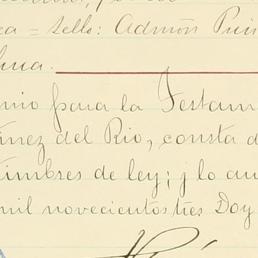 ea = sello: Admón Prin
hua.
nio para la Testam
ínez del Rio, consta d
timbres de ley; j lo au
mil novecientos tres Doy